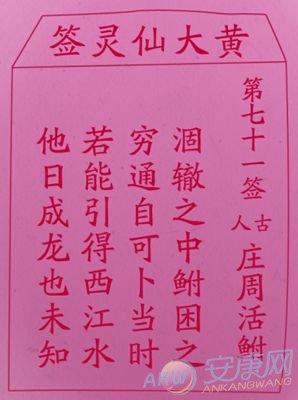 黄大仙灵签
第七十一签 古人 庄周活鲋
涸辙之中鲋困之
穷通自可卜当时
若能引得西江水
他日成龙也未知
AKW 安康网
ANKANGWANG